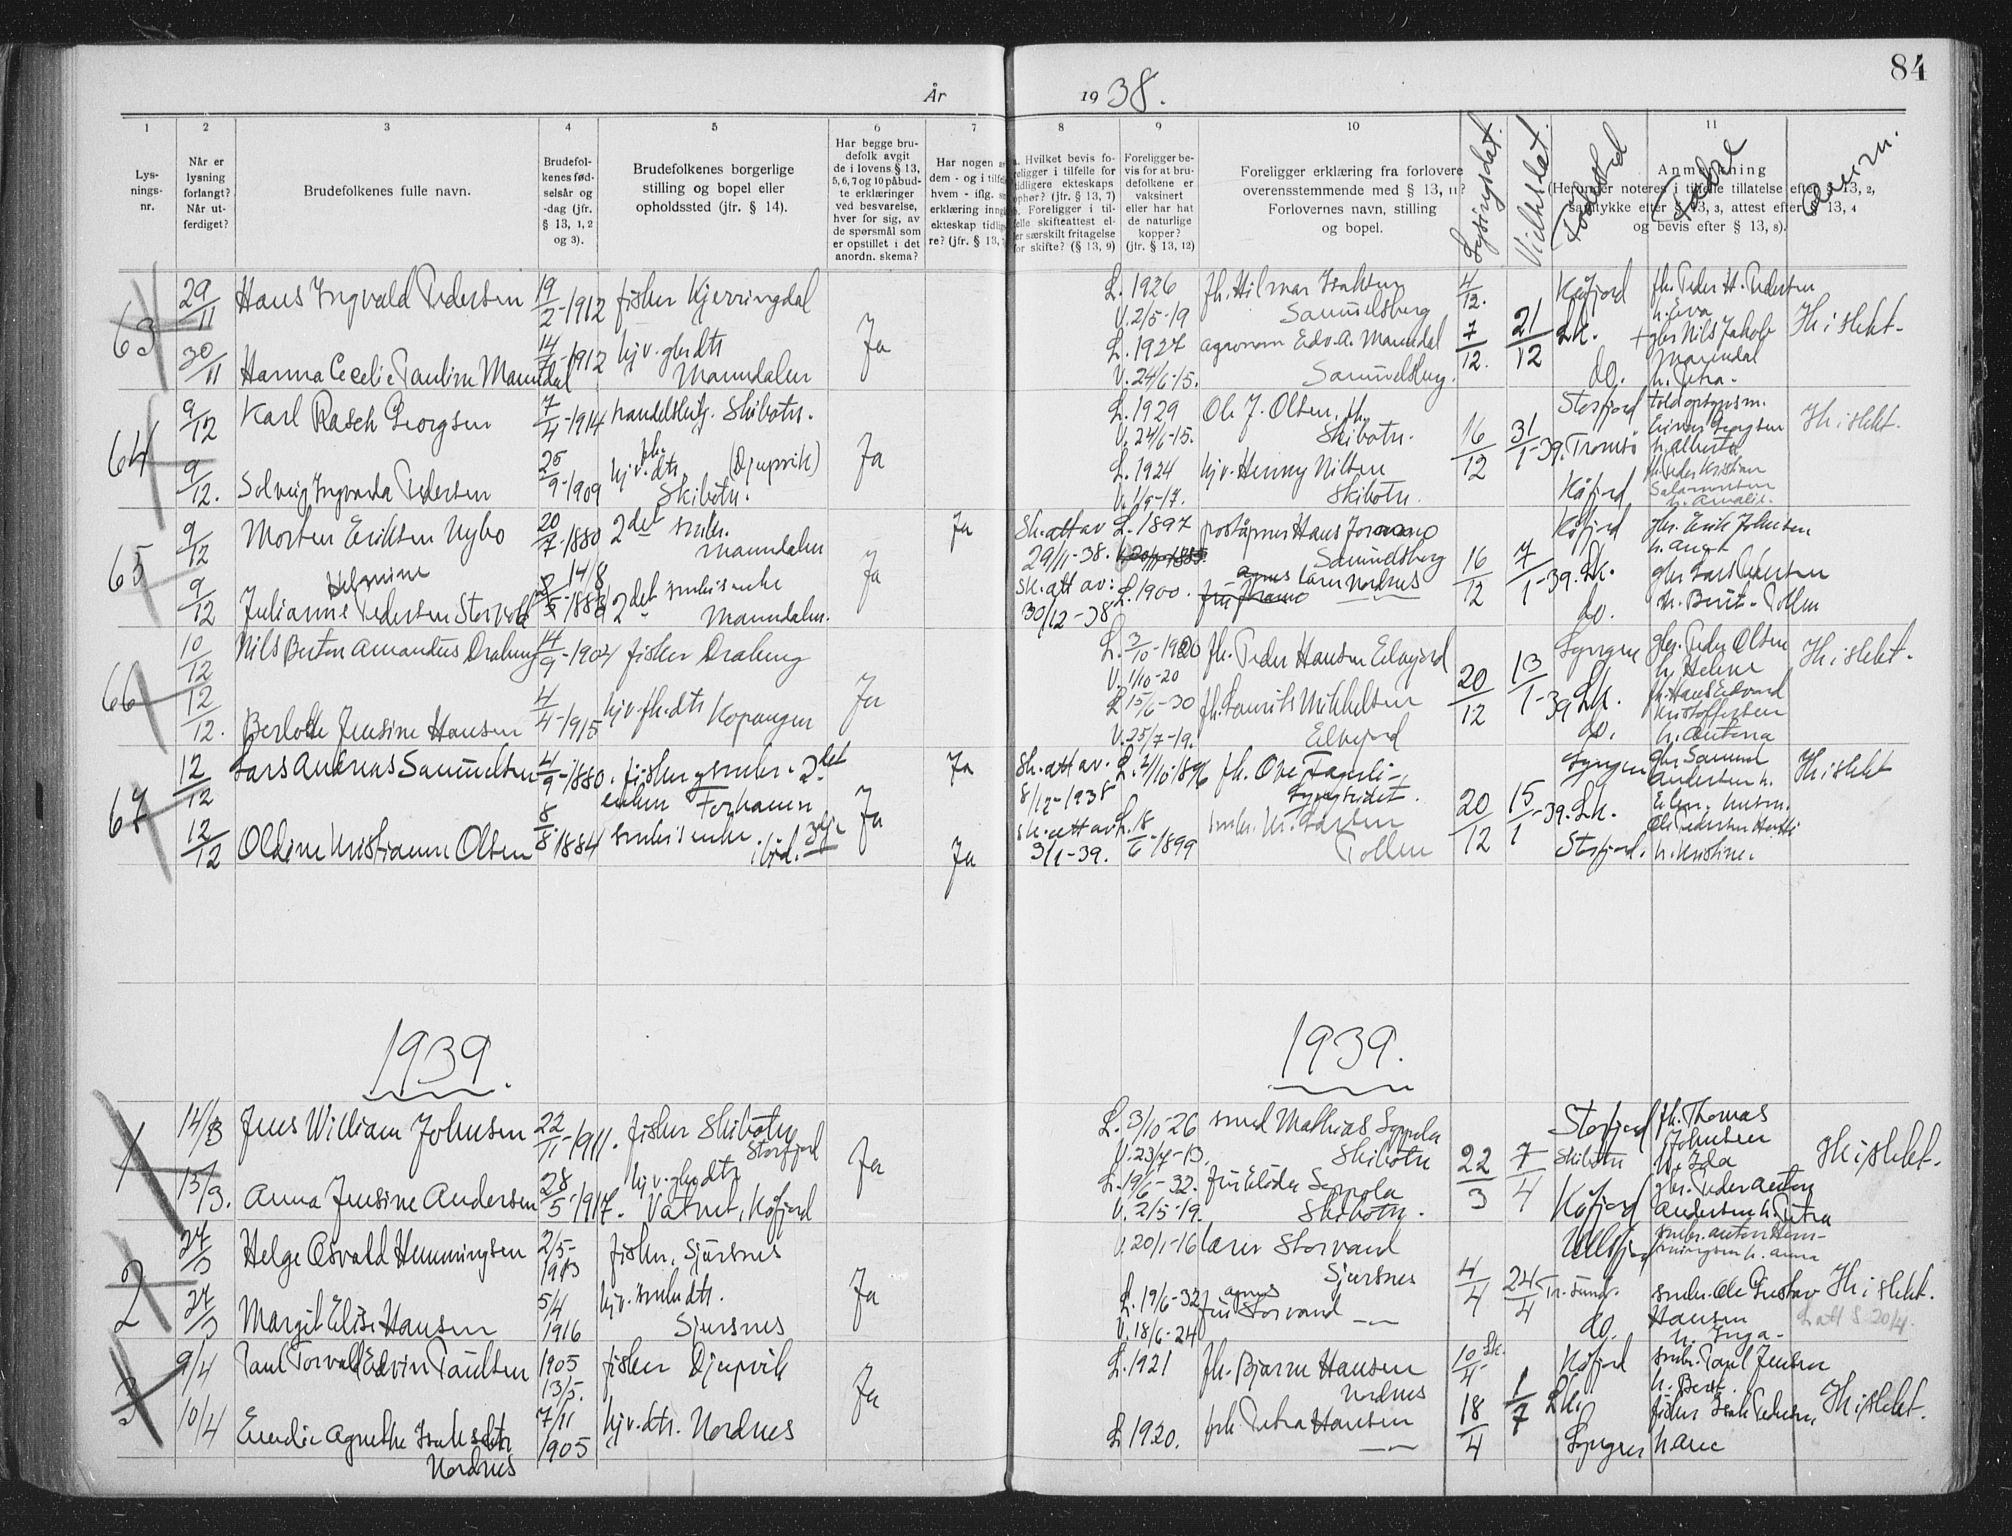 84
År 1938.
1 2 3 4 5 6 7 8 9 10 11
Lys-
nings-
nr.
Når er
lysning
forlangt?
Når ut-
ferdiget?
Brudefolkenes fulle navn.
Brudefol-
kenes fød-
selsår og
-dag (jfr.
§ 13, 1, 2
og 3).
Brudefolkenes borgerlige
stilling og bopel eller
opholdssted (jfr. § 14).
Har begge bru-
defolk avgit
de i lovens § 13,
5, 6, 7 og 10 påbud-
te erklæringer
ved besvarelse,
hver for sig, av
de spørsmål som
er opstillet i det
anordn. skema?
Har nogen a
dem - og i tilfe
hvem - iflg. s
erklæring inng
ekteskap tidlig
re? (jfr. § 13,
a. Hvilket bevis fo-
religger i tilfelle for
tidligere ekteskaps
ophør? (jfr. § 13, 7)
b. Foreligger i til-
felle skifteattest el-
er særskilt fritagelse
for skifte? (§ 13, 9)
Foreligger be-
vis for at bru-
defolkene er
vaksinert
eller har hat
de naturlige
kopper?
(jfr. § 13, 12)
Foreligger erklæring fra forlovere
overensstemmende med § 13, 11?
Forlovernes navn, stilling
og bopel.
Lysingsdat.
Vielsdat.
Fødested
Anmerkning
(Herunder noteres i tilfelle tillatelse efter § 13, 2,
samtykke efter § 13, 3, attest efter § 13, 4
og bevis efter § 13, 8).
63 29/11 Hans Ingvald Pedersen 19/2-1912 fisker Kjerringdal L. 1926 fh. Hilmar Isaksen 4/12. Kåfjord fh. Peder H. Pedersen
V. 2/5-19 Samuelsberg h. Eva
Ja 7/12. 21/12 Lk. Ikke slekt.
30/11 Hanna Cecelie Pauline Manndal 14/7-1912 hjv. gbr dtr. Manndalen L. 1927 agronom Edv. A. Manndal + gbr Nils Jakob
V. 24/6-15. Samuelsberg. do. Manndal
h. Petra.
64 9/12 Karl Rasch Georgsen 7/4-1914 handelsbetj. Skibotn. L. 1929 Ole J. Olsen, fh. Storfjord
V. 24/6-15. Skibotn. Einar Georgsen
Ja 16/12 31/1-39. Tromsø h. Alberta
9/12. Solveig Ingvarda Pedersen 25/9-1909 hjv. fh. dtr. (Djupvik) L. 1924 hjv. Henny Nilsen fh. Peder Kristian
Skibotn. V. 1/9-17. Skibotn. Kåfjord Salamonsen
h. Amalie.
65 9/12 Morten Eriksen Nybo 20/7-1880 2det småbr. Ja Sk. att av L. 1897 poståpner Hans Joramo Kåfjord gbr. Erik Johnsen
Manndalen 29/11-38. Samuelsberg
Ja 16/12 7/1-39. Lk.
Helmine 14/8
9/12 Julianne Pedersen Storvoll 2det småbr. enke Sk. att av: L. 1900. Lars Nordnes gbr Lars Pedersen
Manndalen. 30/12-38 do. h. Berit - Pollen
66 10/12 Nils Berton Amandus Drabeng 14/9-1904 fisker Drabeng L. 3/10-1920 fh. Peder Hansen Elvejord Lyngen gbr. Peder Olsen
V. 1/10-20 h. Helene Ikke slekt.
Ja 20/12 13/1-39 Lk.
12/12. Berlotte Jensine Hansen 4/4-1915 hjv. fh. dtr. Kopangen L. 15/6-30 fh. Laurits Mikkelsen fh. Hans Edvard
V. 25/7-19. Elvejord do. Kristoffersen
h. Antona
67 12/12 Lars Andreas Samuelsen 4/9-1880. fisker og småbr. 2det Ja Sk. att av. L. 2/10-1896 fh. Ove Fagerli Lyngen gbr Samuel
enkem Forhamn 8/12-1938 Lyngseidet. Andersen h. Ikke slekt
Ja 20/12 15/1-39. Lk.
12/12 Oldine Kristianne Olsen 8/8-1884 småbr. enke. ibid. Ja sk. att av L. 18/6-1899 småbr. Kr. Larsen Ole Pedersen
3/1-39. Pollen Storfjord. h. Kristine.
1939. 1939.
1 14/3 Jens William Johnsen 22/1-1911. fisker Skibotn L. 3/10-26 smed Mathias Seppola Storfjord fh. Thomas
Storfjord V. 23/7-13. Skibotn Skibotn Johnsen
Ja 22/3 7/4 h. Ida Ikke slekt.
15/3. Anna Jensine Andersen 28/5-1917. hjv. gbr dtr L. 19/6-32. fru Elida Seppola gbr. Peder Anton
Vatnet, Kåfjord V. 2/5-19. Skibotn. Kåfjord Andersen h. Petra
2 27/3 Helge Osvald Hemmingsen 2/5-1913 fisker, Sjursnes V. 20/1-16 lærer Storvand Ullsfjord småbr. Anton Hem-
Sjursnes mingsen h. Anna
Ja 4/4 24/4
27/3 Margit Elise Hansen 5/4 1916 hjv. småbr dtr. L. 19/6-32 fru Storvand Tr.sund. småbr. Ole Gustav Ikke slekt.
Sjursnes V. 18/6-24 do. Hansen L. att S. 20/4.
h. Inga
3 9/4 Paul Torvald Edvin Paulsen 1905 13/5. fisker Djupvik L. 1921 fh. Bjarne Hansen 10/4 Kåfjord småbr. Paul Jensen
Nordnes h. Berit
Ja 1/7 Lk.
10/4 Emelie Agnethe Isaksdtr 7/11 1905 hjv. dtr. Nordnes L 1920. frk. Petra Hansen 18/4 fisker Isak Pedersen Ikke slekt.
Nordnes Lyngen h. Ane